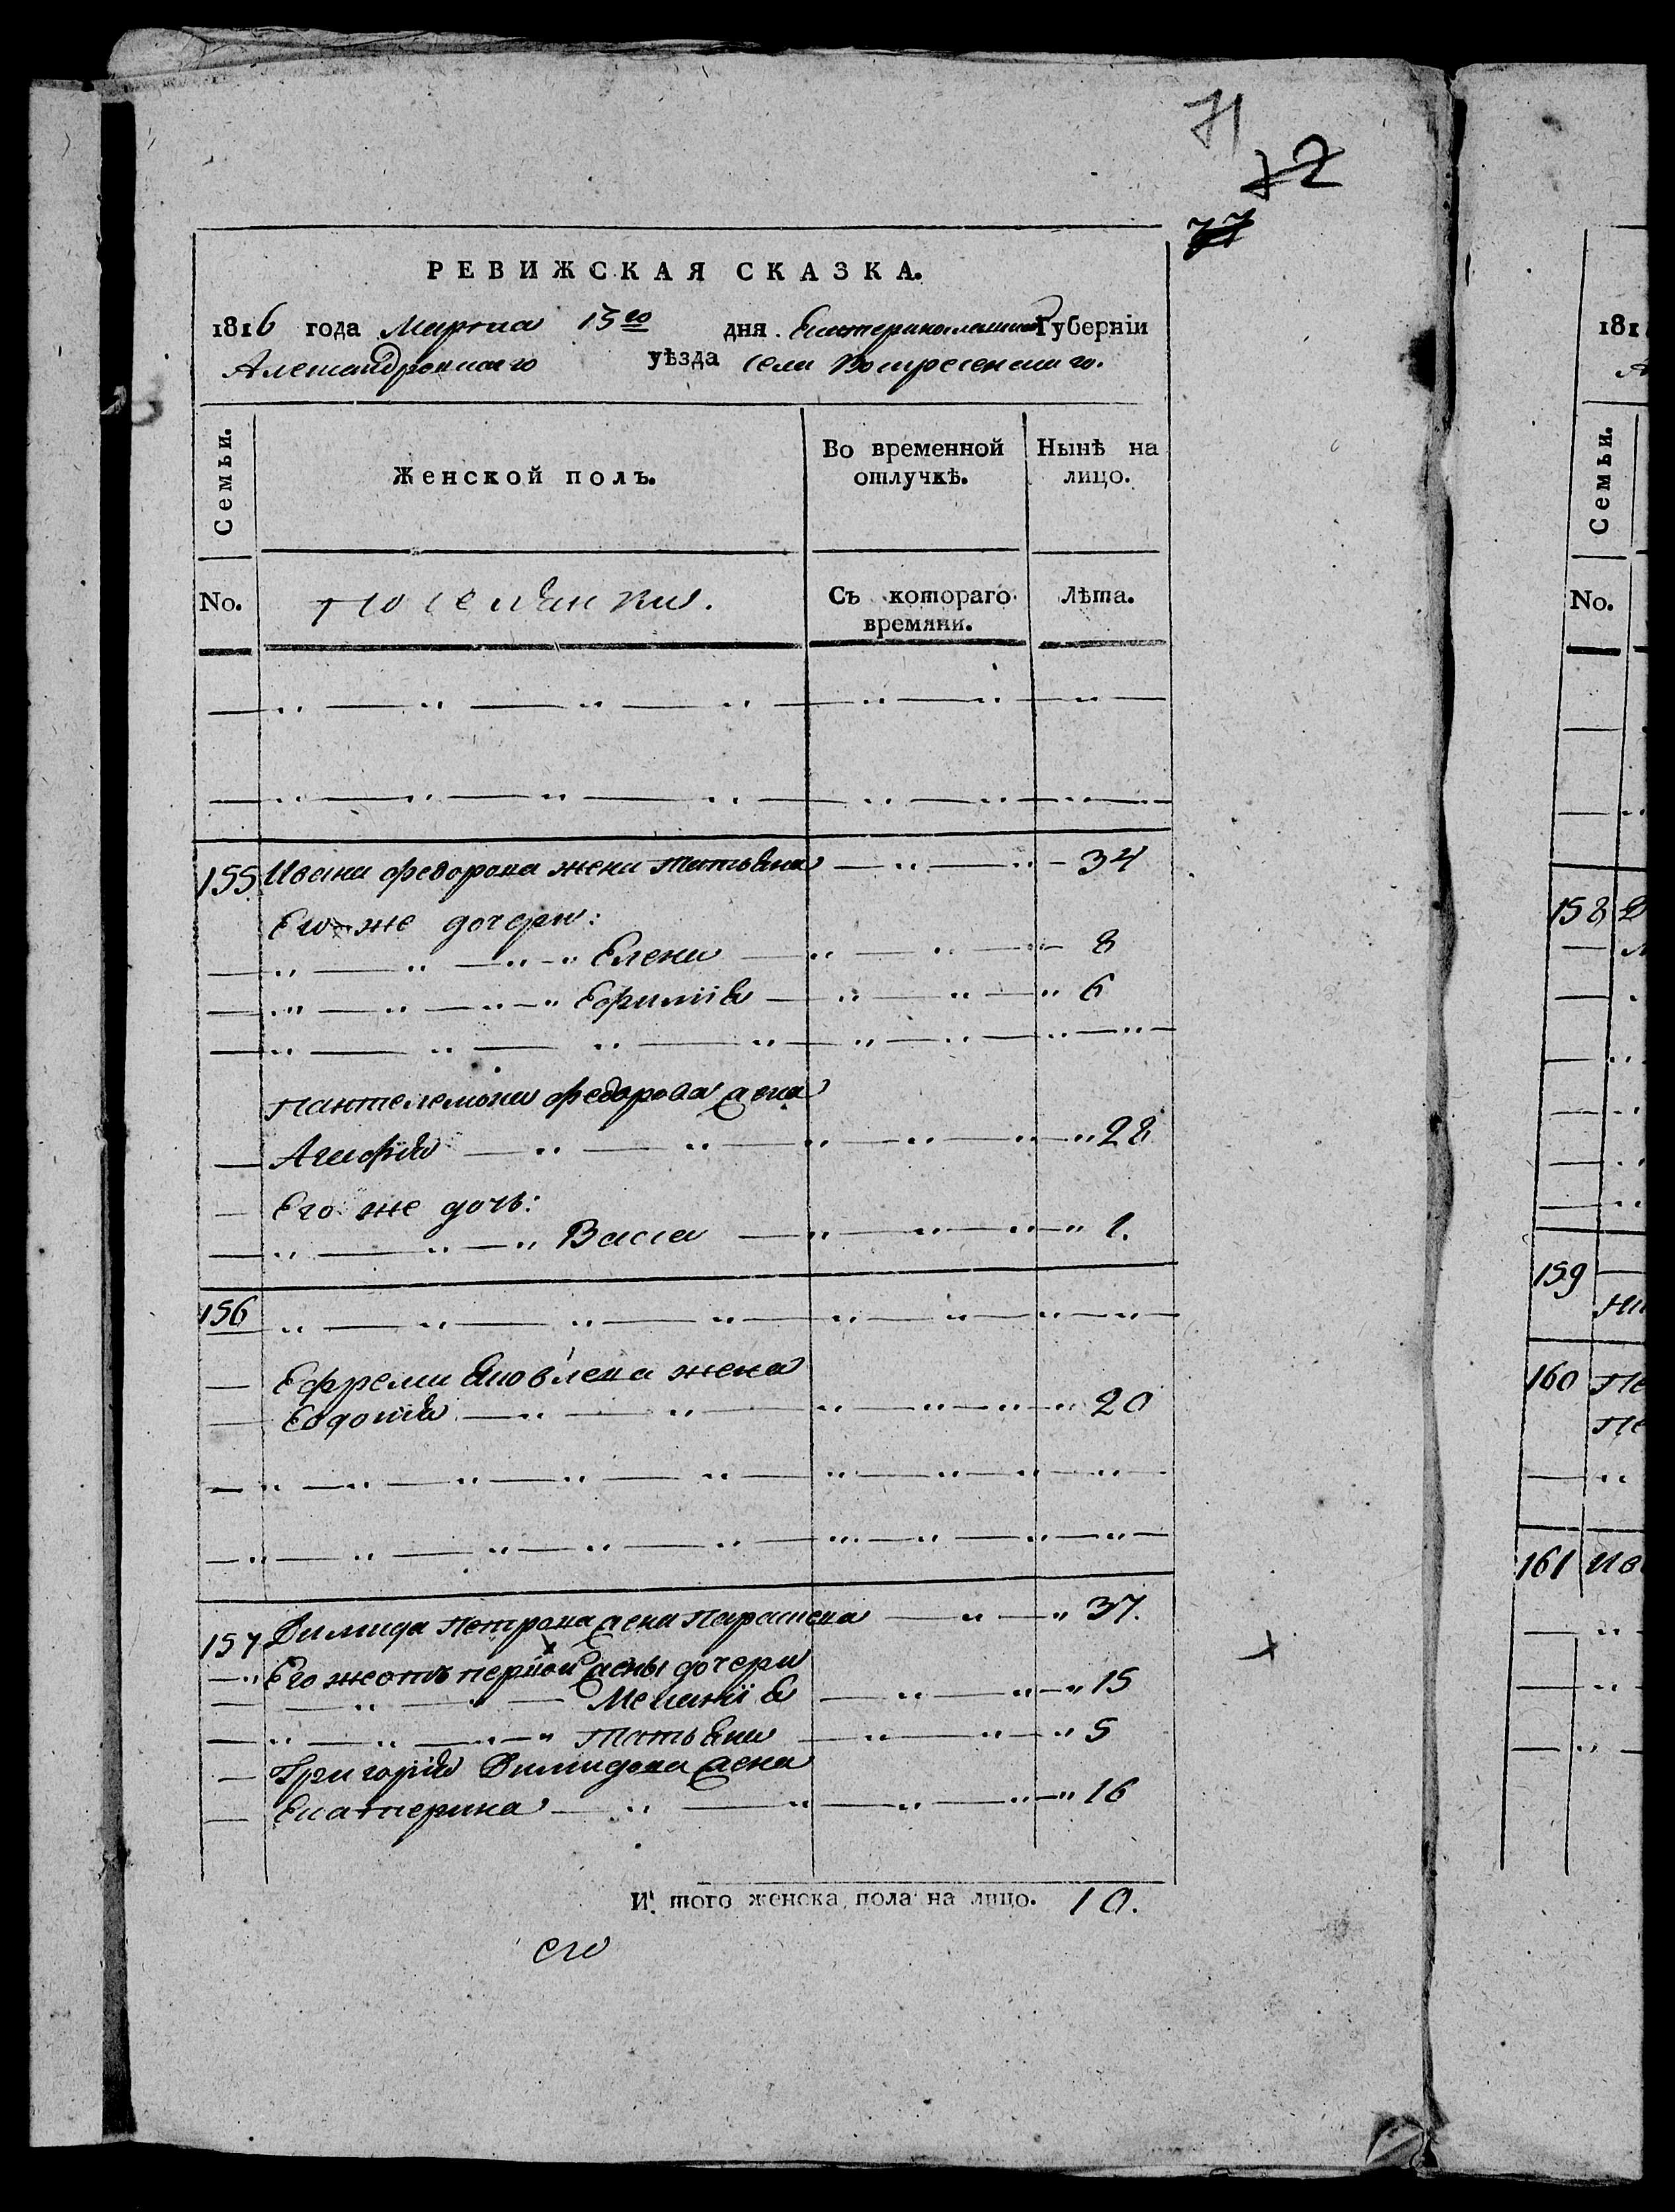 71
72
77
РЕВИЖСКАЯ СКАЗКА.
1816 года Марта 15го дня Екатеринославской Губерніи
Александровскаго уѣзда села Воскресенскаго.
Семьи. Женской полъ. Во временной отлучкѣ. Нынѣ на лицо.
No. Поселянки. Съ котораго времяни. Лѣта.
155 Ивана Федорова жена Татьяна 34
Его же дочери:
Елена 8
Ефимія 6
Пантелемона Федорова жена
Агафия 28
Его же дочь:
Васса 1.
156
Ефрема Яковлева жена
Евдокия 20
157 Димида Петрова жена Параскева 37.
Его же отъ первой жены дочери
Меланія 15
Татьяна 5
Григория Димидова жена
Екатерина 16
И того женска пола на лицо. 10.
его
181
Семьи.
No.
158
159
160
161